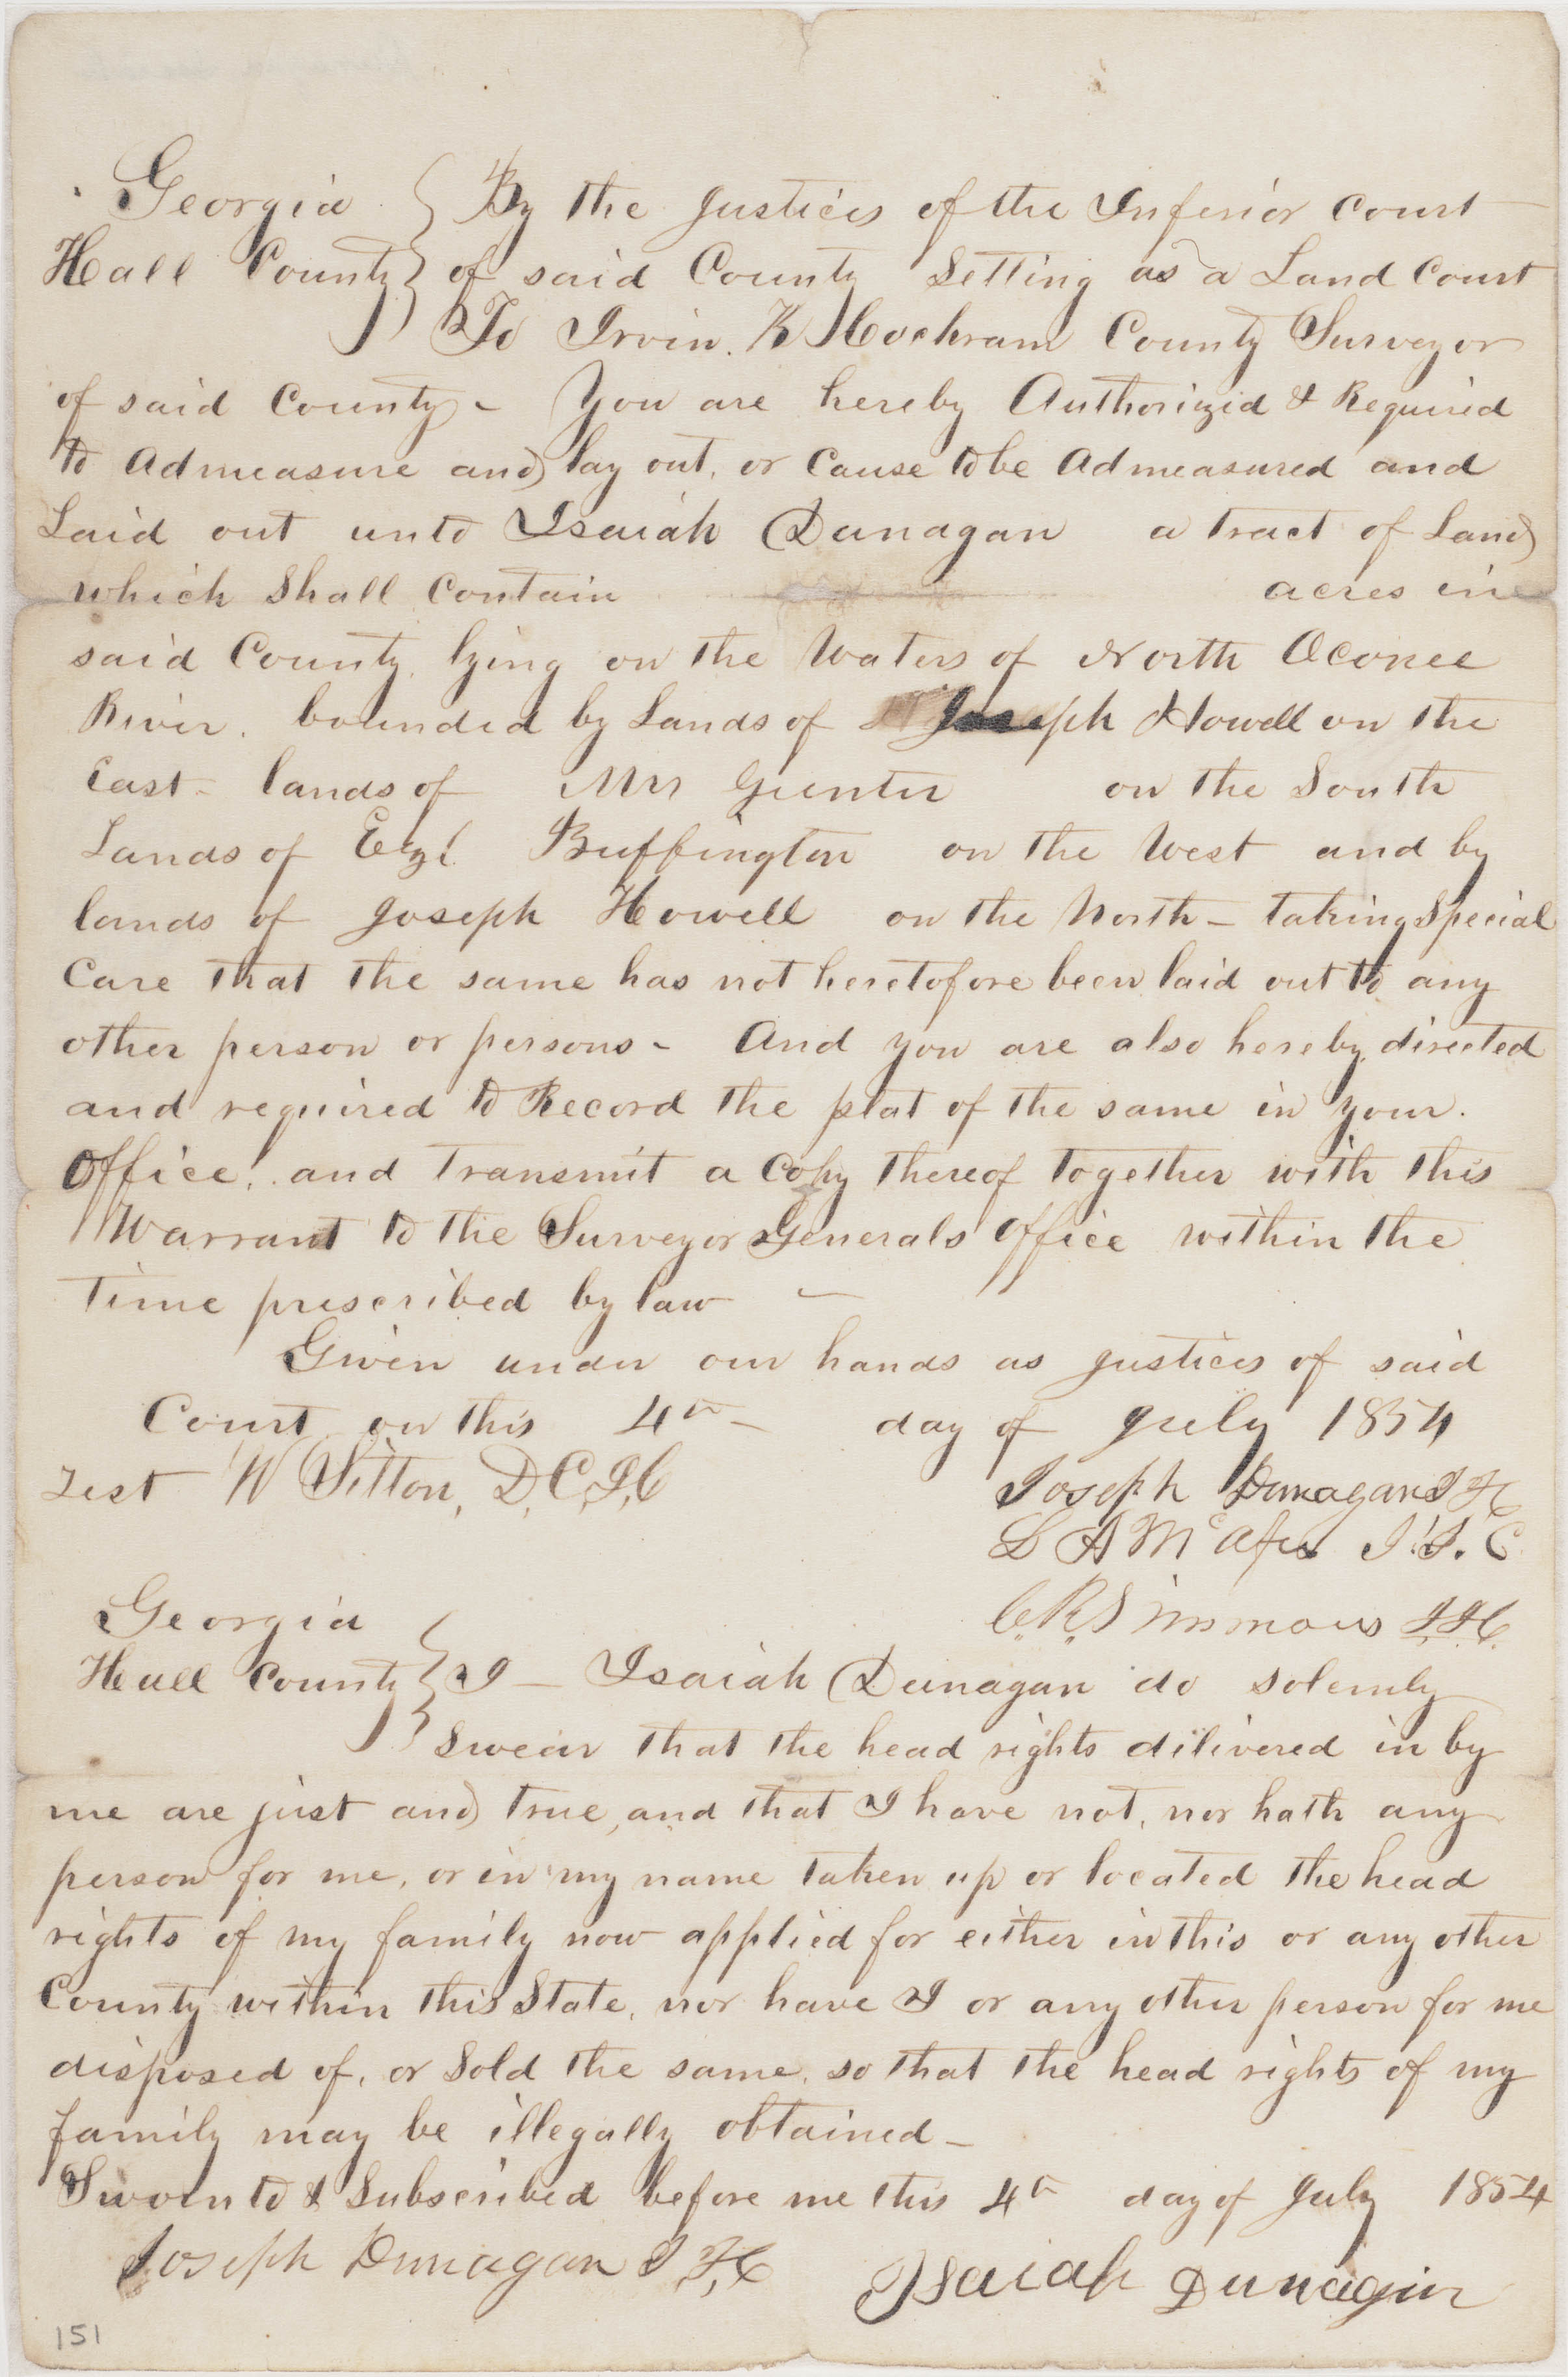 Georgia } By the Justices of the Inferior Court
Hall County } of said County Setting as a Land Court
To Irvin. K Cockram County Surveyor
of said County - You are hereby Authorizid & Required
to Admeasure and lay out, or Cause to be Admeasured and
Laid out unto Isaiah Dunagan a tract of Land
which Shall Contain acres in
said County, lying on the Waters of North Oconee
River. bounded by Lands of Joseph Howell on the
East - lands of Mrs Gunter on the South
Lands of Ezl Buffington on the West and by
lands of Joseph Howell on the North - taking Special
Care that the same has not heretofore been laid out to any
other person or persons - And you are also hereby directed
and required to Record the plat of the same in your.
Office, and transmit a Copy thereof together with this
Warrant to the Surveyor Generals Office within the
time prescribed by law -
Given under our hands as Justices of said
Court on this 4th - day of July 1854
Test W Sitton, D, C, I, C
Joseph Dunagan J I C
L A McAfee J. I. C
C. R. Simmons J. I. C.
Georgia
Hall County } I - Isaiah Dunagan do solemnly
Swear that the head rights dilivered in by
me are just and true, and that I have not, nor hath any
person for me, or in my name taken up or located the head
rights of my family now applied for either in this or any other
County within this State, nor have I or any other person for me
disposed of, or Sold the same, so that the head rights of my
family may be illegally obtained -
Sworn to & Subscribed before me this 4th day of July 1854
Joseph Dunagan J I C
Isaiah Dunagin
151